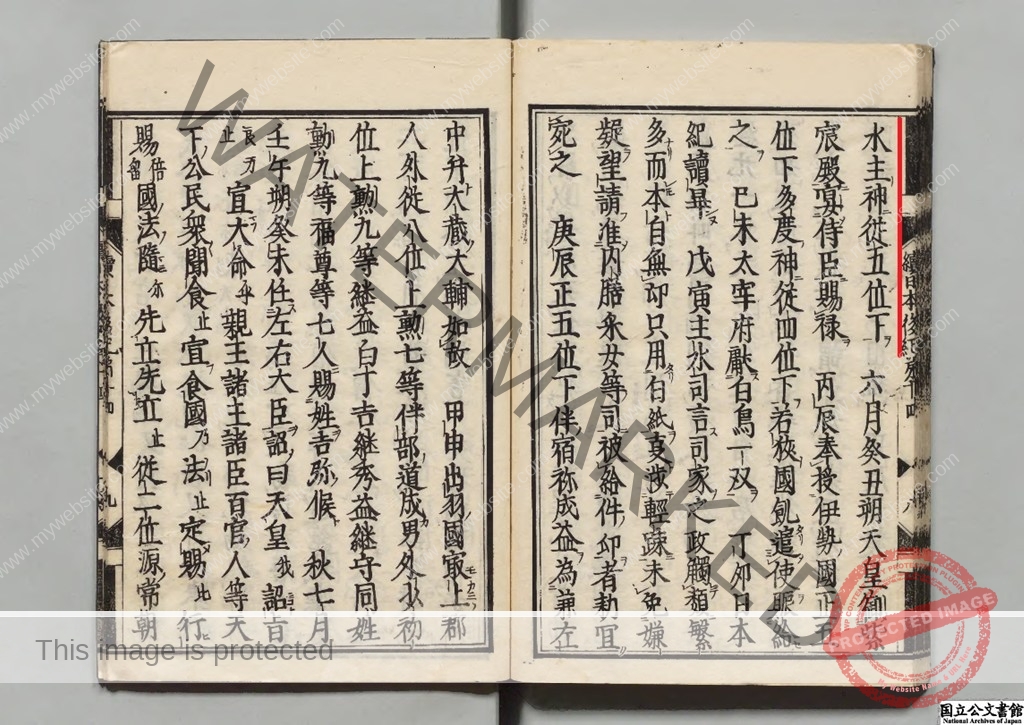 水主神從五位下 六月癸丑朔天皇御紫
宸殿宴侍臣賜禄 丙辰奉授伊勢國正五
位下多度神從四位下若狹國飢遣使賑給
之 己未太宰府獻白鳥一双 丁卯日本
紀讀畢 戊寅主水司言司家之政觸類繁
多而本自無印只用白紙 輕踈未免嫌
疑望請准内膳釆女等司被給件印者勅宜
宛之 庚辰正五位下伴宿祢成益為兼左
中弁大藏大輔如故 甲申出羽國㝡上郡
人外從八位上勲七等伴部道成男外少初
位上勲九等継益白丁吉継秀益継守同姓
勲九等福尊等七人賜姓吉弥候 秋七月
壬午朔癸未任左右大臣詔曰天皇我詔旨
良万止宣大命乎親王諸王諸臣百官人等天
下公民衆聞食止宣食國乃法止定賜比行
賜倍留國法隨尓先立先立止從二位源常朝
續日本後紀卷十四
八
九
WATERMARKED
www.mywebsite.com
This image is protected
PROTECTED IMAGE
My Website Name & URL Here
国立公文書館
National Archives of Japan